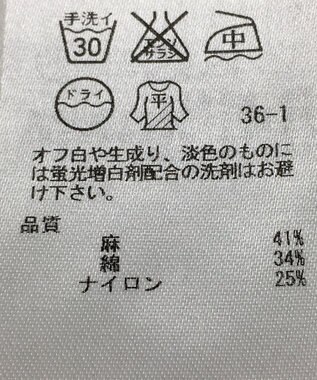 手洗イ
30
エンソ
サラシ
中
ドライ
平
36-1
オフ白や生成り、淡色のものに
は蛍光増白剤配合の洗剤はお避
け下さい。
品質
麻 41%
綿 34%
ナイロン 25%